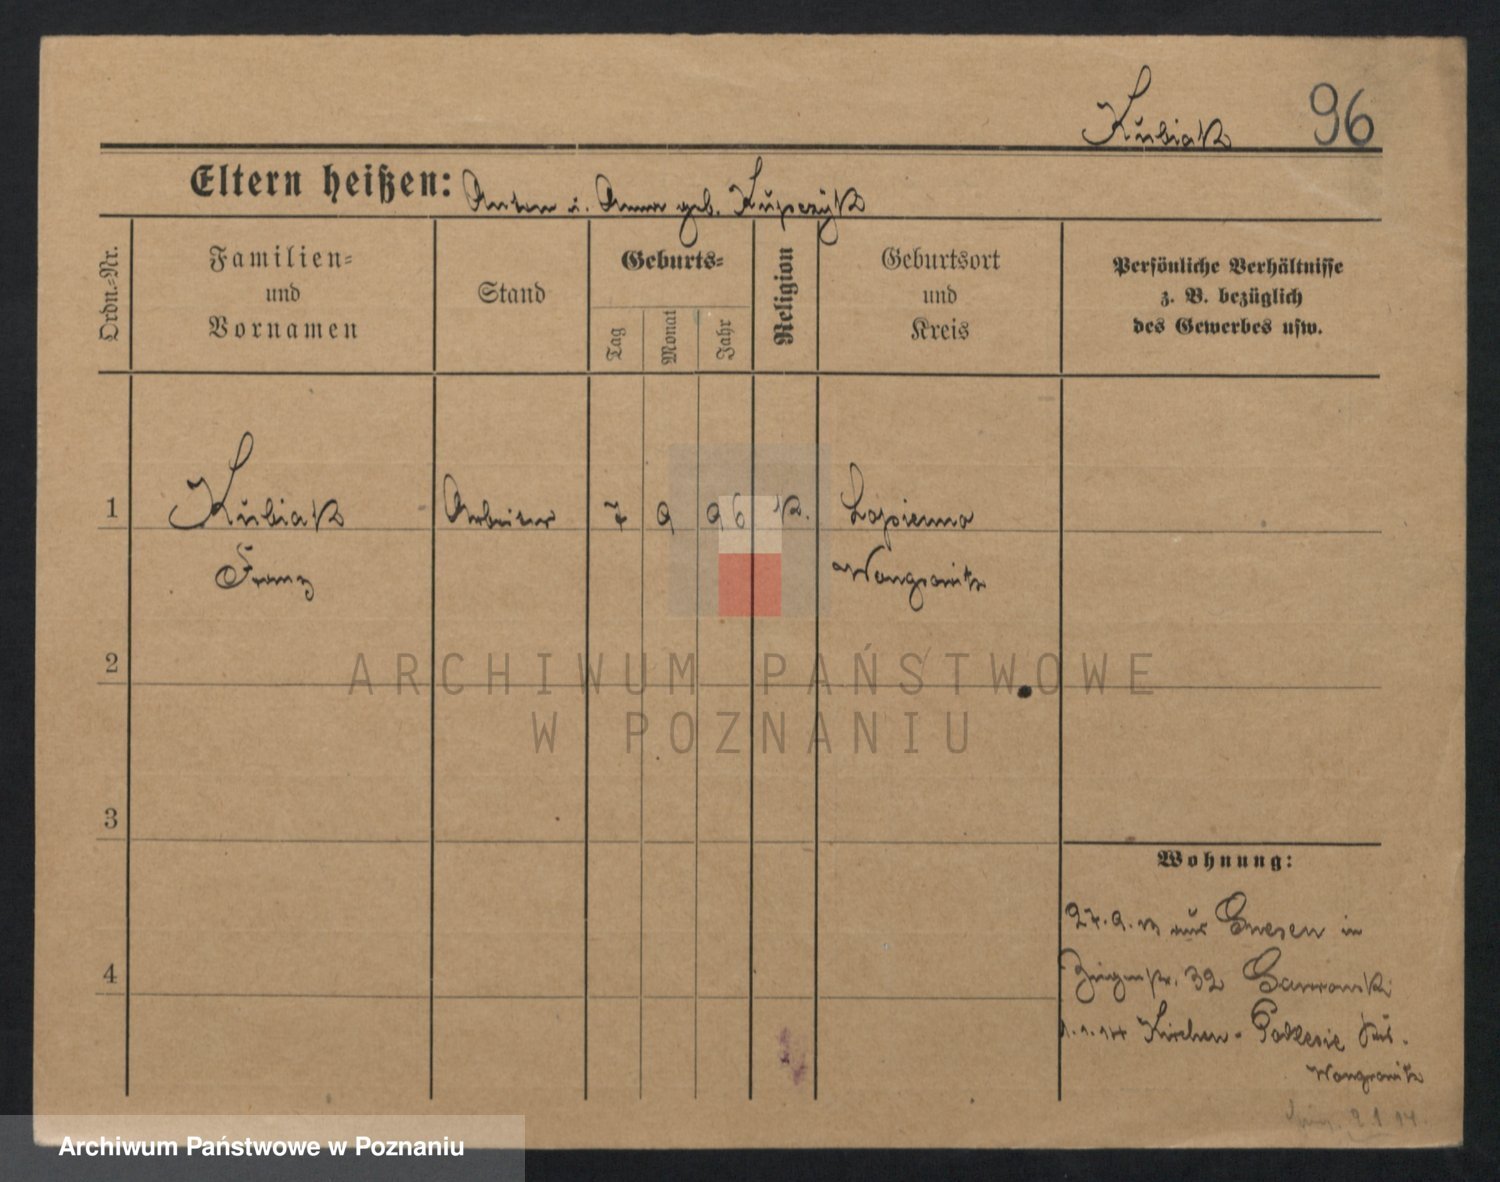 Kubiak 96
Eltern heißen: Anton u. Anna geb. Kupczyk
Ordn.-Nr.
Familien-
und
Vornamen
Stand
Geburts-
Tag
Monat
Jahr
Religion
Geburtsort
und
Kreis
Persönliche Verhältnisse
z. B. bezüglich
des Gewerbes usw.
1 Kubiak Arbeiter 7 9 96 K. Lopienno
Franz Wongrowitz
2
ARCHIWUM PAŃSTWOWE
W POZNANIU
3
Wohnung:
27.9.13 aus Gnesen in
4
32
1.1.14 Kirchen-Podlesie Krs.
Wongrowitz
2.1.14.
Archiwum Państwowe w Poznaniu